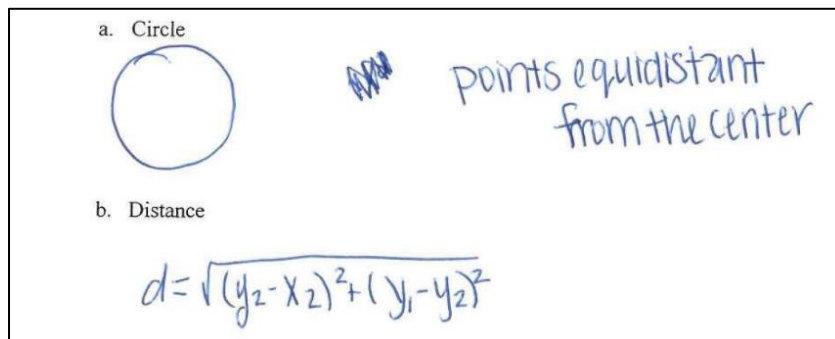 a. Circle
points equidistant
from the center
b. Distance
d=√(y₂-x₂)²+(y₁-y₂)²